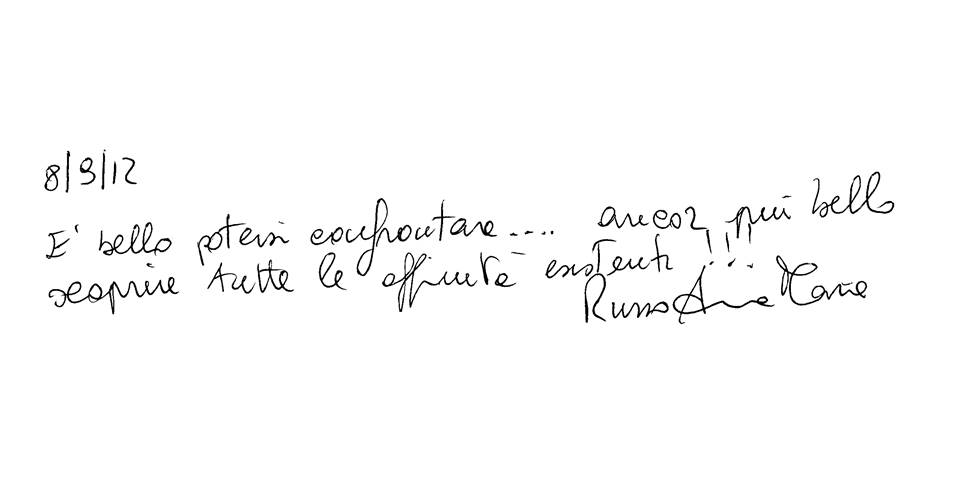 8/9/12
E' bello potersi confrontare.... ancor più bello
scoprire tutte le affinità esistenti!!!
Russo Anna Maria